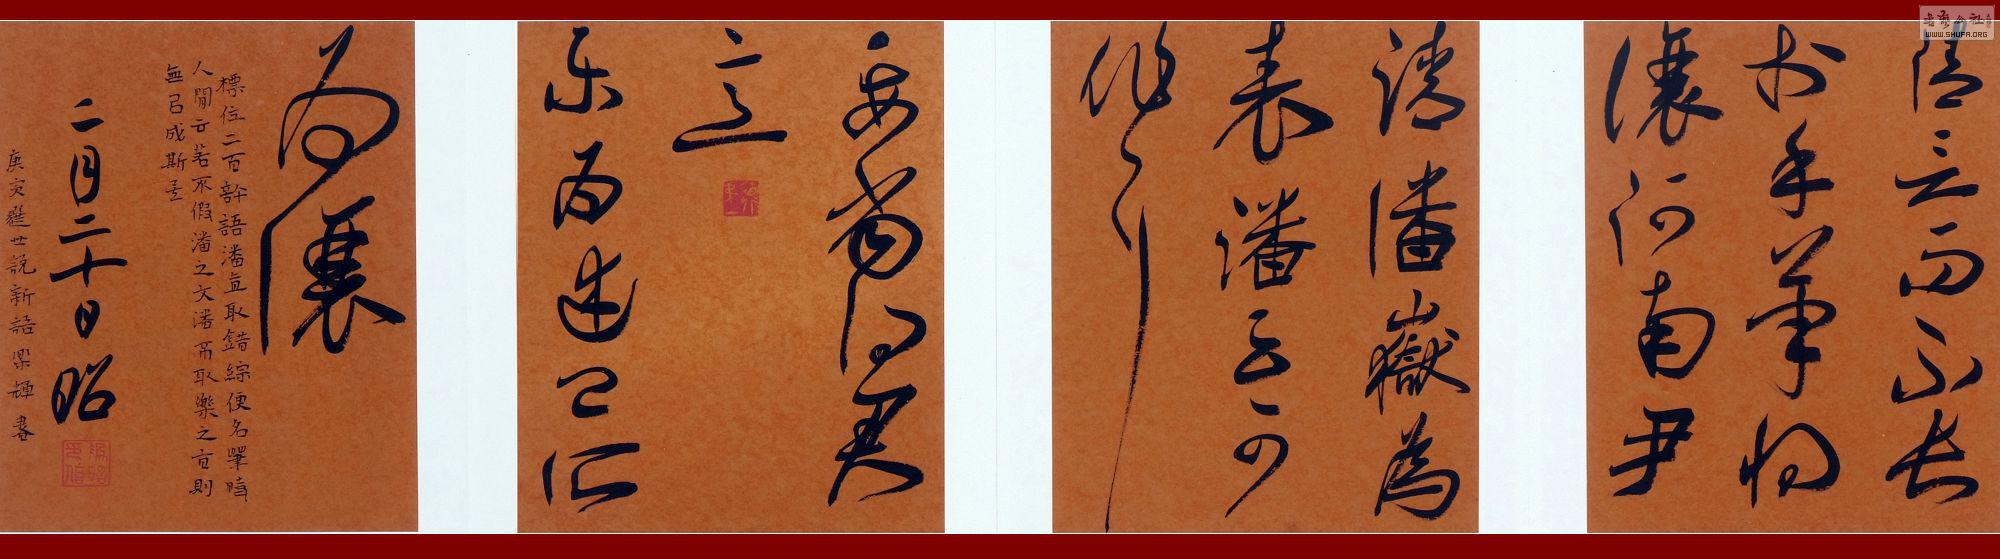 清言而不長
於手筆將
讓河南尹
請潘嶽為
表潘云可
作耳
要當得君
意
樂為述己所
為讓
標位二百許語潘直取錯綜便名筆時
人閒云若不假潘之文潘不取樂之旨則
無㠯成斯矣
二月二十日昭
庚寅世說新語書
書藝公社
WWW.SHUFA.ORG